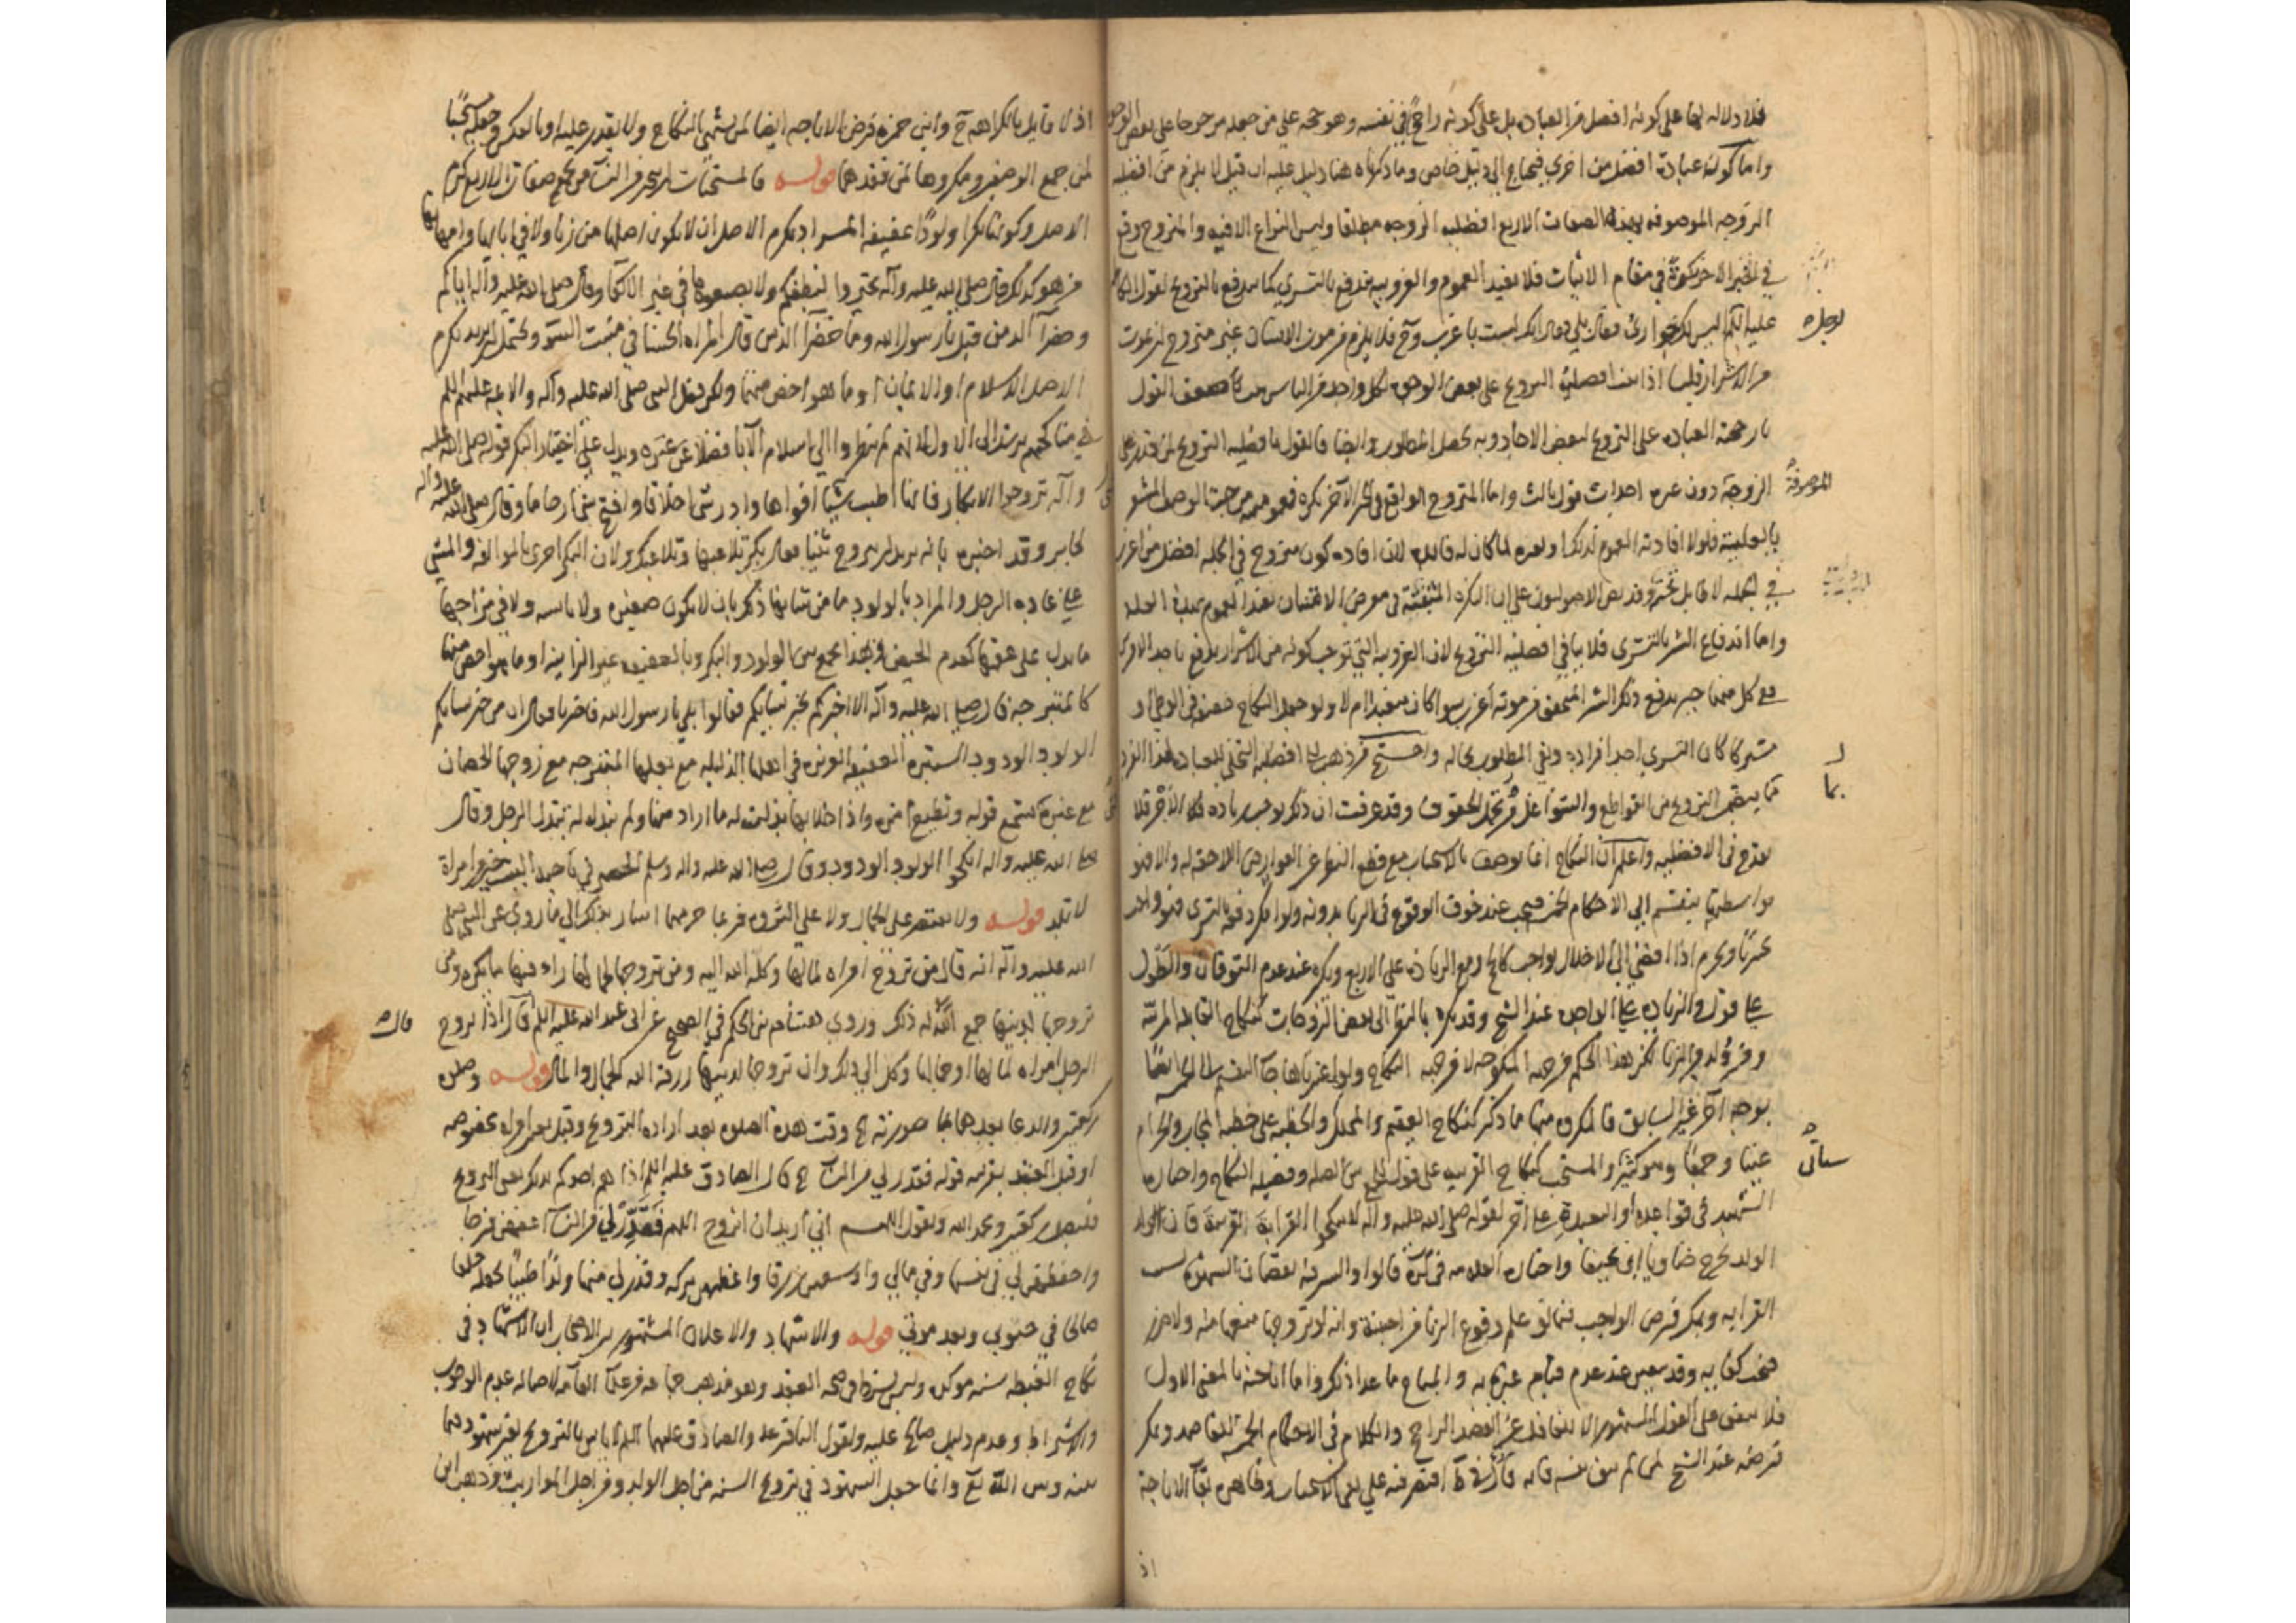 فلا دلاله لها على كونه افضل من العبادة بل على كونه راجحا في نفسه وهو حجة على من جعله مرجوحا على بعض الوجوه
واما كونه عبادة افضل من اخرى فيحتاج الى دليل خاص وما ذكرناه هنا دليل عليه ان قيل لا يلزم من افضليه
الزوجه الموصوفه بهذه الصفات الاربع افضليه الزوجه مطلقا وليس النزاع الا فيه والمتزوج وقع
في الخبر الاخر نكرة في مقام الاثبات فلا يفيد العموم والعزوبيه تندفع بالتسري كما تندفع بالتزويج لقول
عليه السلم اليس لك جواري فقال بلى فقال انك لست باعزب وح فلا يلزم من موت الانسان غير متزوج
من الاشرار قلنا اذا ثبت افضليه التزويج على بعض الوجوه لكل واحد من الناس ضعف القول
بارجحية العبادة على التزويج لبعض الاحاد وبه يحصل المطلوب وايضا فالقول بافضليه التزويج لمن قدر على
الموصوفة
الزوجة دون غيره احداث قول ثالث واما المتزوج الواقع في الخبر الآخر نكره فعمومه من جهة الوصل المشعر
بالعليه فلولا افادته العموم لذلك وغيره لما كان له فائده لان افاده كون متزوج في الجمله افضل من اعزب
في الجمله لا طايل تحته وقد نص الاصوليون على ان النكرة المثبتة في معرض الامتنان تفيد العموم بهذه العله
واما اندفاع الشر بالتسري فلا ينافي افضليه التزويج لان العزوبيه التي توجب كونه من الاشرار يندفع باحد الامرين
مع كل منهما خير يدفع ذلك الشر المتحقق من موته اعزب سوا كان مقيدا ام لا ولو جعل النكاح حقيقة في الوطي او
مشتركا كان التسري احد افراده وبقى المطلوب بحاله واحتج من ذهب الى افضليه التخلي للعباده لهذا الفرد
بما
مما يتضمن التزويج من القواطع والشواغل وتحمل الحقوق وقد عرفت ان ذلك يوجب زياده في الاجر فلا
يقدح في الافضليه واعلم ان النكاح انما يوصف بالاستحباب مع قطع النظر عن العوارض اللاحقه له والا فهو
بواسطتها ينقسم الى الاحكام الخمسه فيجب عند خوف الوقوع في الزنا بدونه ولو امكن دفعه بالتسري فهو واجب
مخيرا ويحرم اذا افضى الى الاخلال بواجب كالحج ومع الزياده على الاربع ويكره عند عدم التوقان والطول
على قول والزياده على الواحده عند الشيخ وقد يكره بالنظر الى بعض الزوجات كنكاح القابله المربية
ومن ولد من الزنا لكن هذا الحكم من جهه المنكوحه لا من جهه النكاح ولو اعتبرناها جا التقسيم الى الخمسه ايضا
بوجه آخر غير السابق فالمكروه منها ما ذكر كنكاح العقيم والمحلل والخطبه على خطبه المجاب والحرام
سيأتي
عينا وجمعا وهو كثير والمستحب كنكاح القريب على قول للجمع بين الصله وفضيله النكاح واختاره
الشهيد في قواعده او البعيده على آخر لقوله صلى الله عليه وآله لا تنكحوا القرابة القريبة فان الولد
الولد يخرج ضاويا اي نحيفا واختاره العلامه في كره قالوا والسر فيه نقصان الشهوه بسبب
القرابه ويمكن فرض الواجب فيما لو علم وقوع الزنا من اجنبية وانه لو تزوجها منعها منه ولا ضرر
فتجب كفايه وقد يتعين عند عدم قيام غيره به والمباح ما عدا ذلك واما اباحته بالمعنى الاول
فلا يتفق على القول المشهور الا انها قد عن الفضل الراجح والكلام في الاحكام الخمسه للقاصد ويمكن
فرضه عند الشيخ لمن لم تتق نفسه فانه في ط اقتصر فيه على نفي الاستحباب وظاهره بقاء الاباحة
اذ
اذ لا قايل بالكراهه ح وابن حمزه فرض الاباحه ايضا لمن يشتهي النكاح ولا يقدر عليه او بالعكس وجعله مستحبا
لمن جمع الوصفين ومكروها لمن فقدهما قوله فالمستحبات ان يتخير من النساء من تجمع صفات الاربع كرم
الاصل وكونها بكرا ولودا عفيفه المراد بكرم الاصل ان لا يكون اصلها من زنا ولا في ابائها وامهاتها
من هو كذلك قال صلى الله عليه وآله تخيروا لنطفكم ولا تضعوها في غير الاكفاء وقال صلى الله عليه وآله اياكم
وخضراء الدمن قيل يا رسول الله وما خضراء الدمن قال المراه الحسنا في منبت السوء ويحتمل ان يريد بكرم
الاصل الاسلام او الايمان او ما هو اخص منهما ولكن فعل النبي صلى الله عليه وآله والائمه عليهم السلم
في مناكحهم يرشد الى الاول لانهم لم ينظروا الى اسلام الآبا فضلا عن غيره ويدل على اختيار البكر قوله صلى الله عليه
وآله تزوجوا الابكار فانها اطيب شيء افواها وادر شيء اخلافا وافتح شيء ارحاما وقال صلى الله عليه وآله
لجابر وقد اخبره بانه يريد ان يتزوج ثيبا فهلا بكرا تلاعبها وتلاعبك ولان البكر احرى بالموالفه والمشي
على عاده الرجل والمراد بالولود ما من شانها ذلك بان لا يكون صغيره ولا يائسه ولا في مزاجها
ما يدل على عقمها كعدم الحيض وبهذا يجمع بين الولود والبكر وبالعفيفه غير الزانيه او ما هو اخص منها
كالمتبرجه قال صلى الله عليه وآله الا اخبركم بخير نسائكم فقالوا بلى يا رسول الله فاخبرنا قال ان من خير نسائكم
الولود الودود الستيره العفيفه العزيزه في اهلها الذليله مع بعلها المتبرجه مع زوجها الحصان
مع غيره تسمع قوله وتطيع امره واذا خلا بها بذلت له ما اراد منها ولم تبذل له تبذل الرجل وقال
صلى الله عليه واله انكحوا الولود الودود وقال صلى الله عليه واله وسلم الحصير في ناحيه البيت خير من امراة
لا تلد قوله ولا يقتصر على الجمال ولا على الثروه فربما حرمهما اشار بذلك الى ما روي عن النبي صلى
الله عليه وآله انه قال من تزوج امراه لمالها وكله الله اليه ومن تزوجها لجمالها راى فيها ما يكره ومن
تزوجها لدينها جمع الله له ذلك وروي هشام بن الحكم في الصحيح عن ابي عبد الله عليه السلم قال اذا تزوج
الرجل امراه لمالها او جمالها وكل الى ذلك وان تزوجها لدينها رزقه الله الجمال والمال قوله وصلوة
ركعتين والدعا بعدهما بما صورته وقت هذه الصلوه بعد اراده التزويج وقبل تعيين امراه مخصوصه
او قبل العقد بقرينه قوله فقدر لي من النساء قال الصادق عليه السلم اذا هم احدكم بذلك يعني التزويج
فليصل ركعتين ويحمد الله ويقول اللهم اني اريد ان اتزوج اللهم فقدر لي من النساء اعفهن فرجا
واحفظهن لي في نفسها وفي مالي واوسعهن رزقا واعظمهن بركه وقدر لي منها ولدا طيبا تجعله خلفا
صالحا في حيوتي وبعد موتي قوله والاشهاد والاعلان المشهور بين الاصحاب ان الاشهاد في
نكاح الغبطه سنه موكده وليس شرطا في صحه العقد وهو مذهب جماعه من علماء العامه لاصاله عدم الوجوب
والاشتراط وعدم دليل صالح عليه ولقول الباقر والصادق عليهما السلم لا باس بالتزويج بغير شهود فيما
بينه وبين الله تع وانما جعل الشهود في تزويج السنه من اجل الولد ومن اجل المواريث وذهب ابن